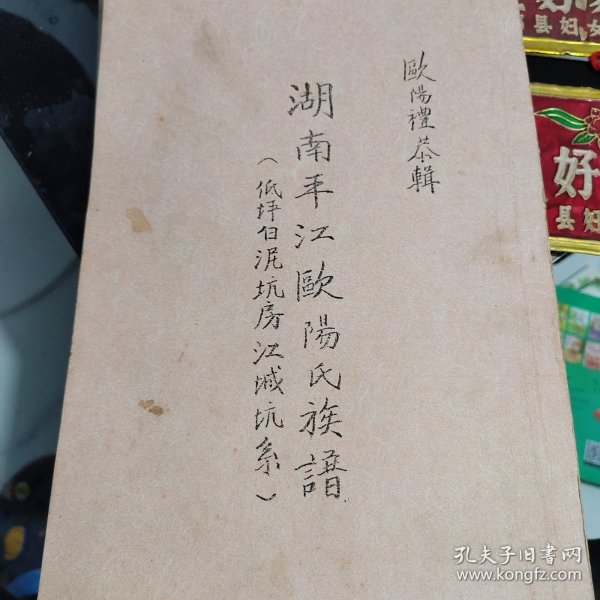 歐陽禮恭輯
湖南平江歐陽氏族譜
（低坪白泥坑房江城坑系）
好
县妇女
好
县妇
孔夫子旧书网
www.kongfz.com